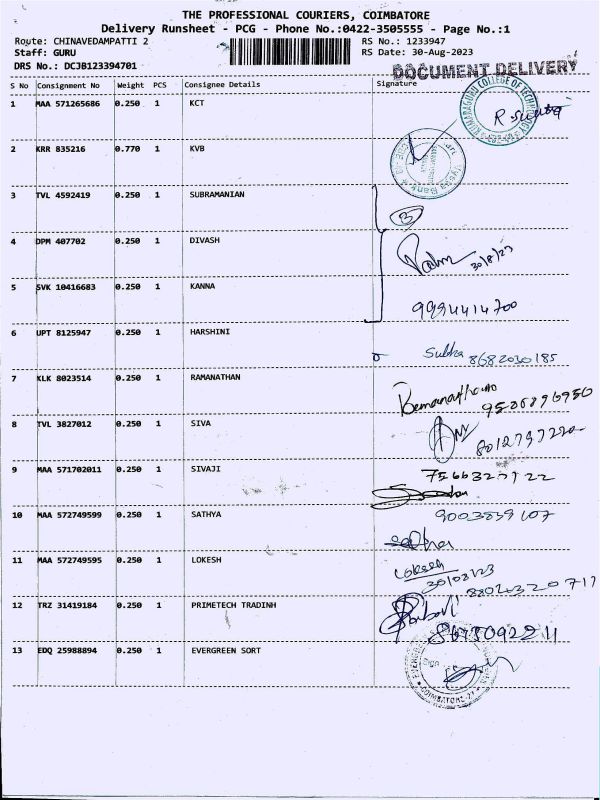 THE PROFESSIONAL COURIERS, COIMBATORE
Delivery Runsheet - PCG - Phone No.:0422-3505555 - Page No.:1
Route: CHINAVEDAMPATTI 2 RS No.: 1233947
Staff: GURU RS Date: 30-Aug-2023
DRS No.: DCJB123394701
DOCUMENT DELIVERY
S No Consignment No Weight PCS Consignee Details Signature
1 MAA 571265686 0.250 1 KCT
2 KRR 835216 0.770 1 KVB
3 TVL 4592419 0.250 1 SUBRAMANIAN
3
4 DPM 407702 0.250 1 DIVASH
30/8/23
5 SVK 10416683 0.250 1 KANNA
9994414700
6 UPT 8125947 0.250 1 HARSHINI
Subha 8682030185
7 KLK 8023514 0.250 1 RAMANATHAN
8 TVL 3827012 0.250 1 SIVA
9 MAA 571702011 0.250 1 SIVAJI
10 MAA 572749599 0.250 1 SATHYA
11 MAA 572749595 0.250 1 LOKESH
Lokesh
30/08/23
12 TRZ 31419184 0.250 1 PRIMETECH TRADINH
13 EDQ 25988894 0.250 1 EVERGREEN SORT